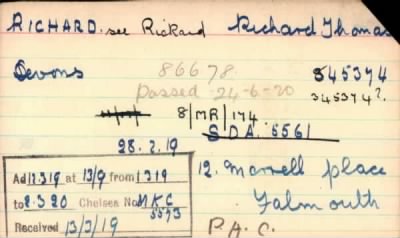 RICHARD. see Rickard Richard Thomas
Devons 86678 345374
Passed 24-6-20 345374?
8/MR/174
SDA. 5561
28.2.19
Ad 12.3.19 at 13/9 from 1319
to 2.3.20 Chelsea No. MKC
5573
Received 13/3/19
12. place
Falmouth
P.A.C.